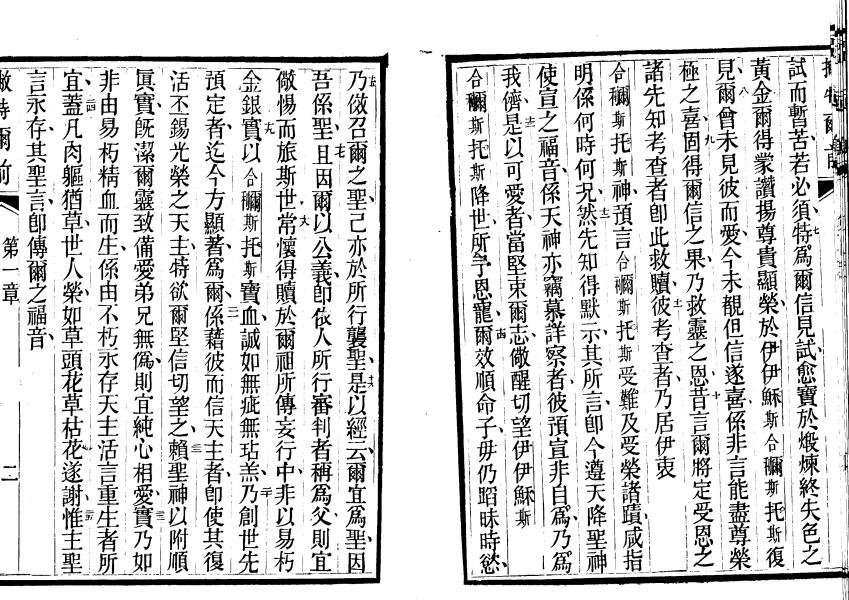 試而暫苦若必須七特爲爾信見試愈寶於煅煉終失色之
黃金爾得蒙讚揚尊貴顯榮於伊伊穌斯合𤅢斯托斯復
見八爾曾未見彼而愛今未覩但信遂喜係非言能盡尊榮
極之喜九固得爾信之果乃救靈之恩十昔言爾將定受恩之
諸先知考查者卽此救贖十一彼考查者乃居伊衷
合𤅢斯托斯神預言合𤅢斯托斯受難及受榮諸蹟咸指
明係何時何况十二然先知得默示其所言卽今遵天降聖神
使宣之福音係天神亦竊慕詳察者彼預宣非自爲乃爲
我儕十三是以可愛者當堅束爾志儆醒切望伊伊穌斯
合𤅢斯托斯降世所予恩寵十四爾效順命子毋仍蹈昧時慾
十五乃傚召爾之聖己亦於所行襲聖十六是以經云爾宜爲聖因
吾係聖十七且因爾以公義卽依人所行審判者稱爲父則宜
儆惕而旅斯世十八常懷得贖於爾祖所傳妄行中非以易朽
金銀十九實以合𤅢斯托斯寶血誠如無疵無玷羔二十乃創世先
預定者迄今方顯著爲爾二一係藉彼而信天主者卽使其復
活丕錫光榮之天主特欲爾堅信切望之二二賴聖神以附順
眞實旣潔爾靈致備愛弟兄無僞則宜純心相愛二三實乃如
非由易朽精血而生係由不朽永存天主活言重生者所
宜二四蓋凡肉軀猶草世人榮如草頭花草枯花遂謝二五惟主聖
言永存其聖言卽傳爾之福音
第一章
二